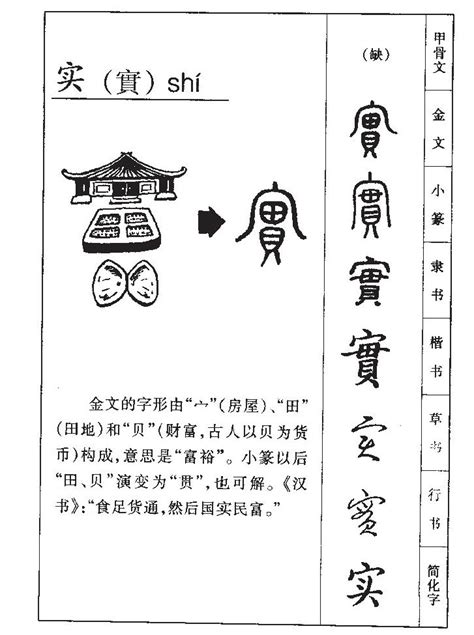 实（實）shí
實
金文的字形由“宀”(房屋)、“田”
(田地)和“贝”(财富，古人以贝为货
币)构成，意思是“富裕”。小篆以后
“田、贝”演变为“贯”，也可解。《汉
书》：“食足货通，然后国实民富。”
（缺） 甲骨文
實 金文
實 小篆
實 隶书
實 楷书
实 草书
实 行书
实 简化字